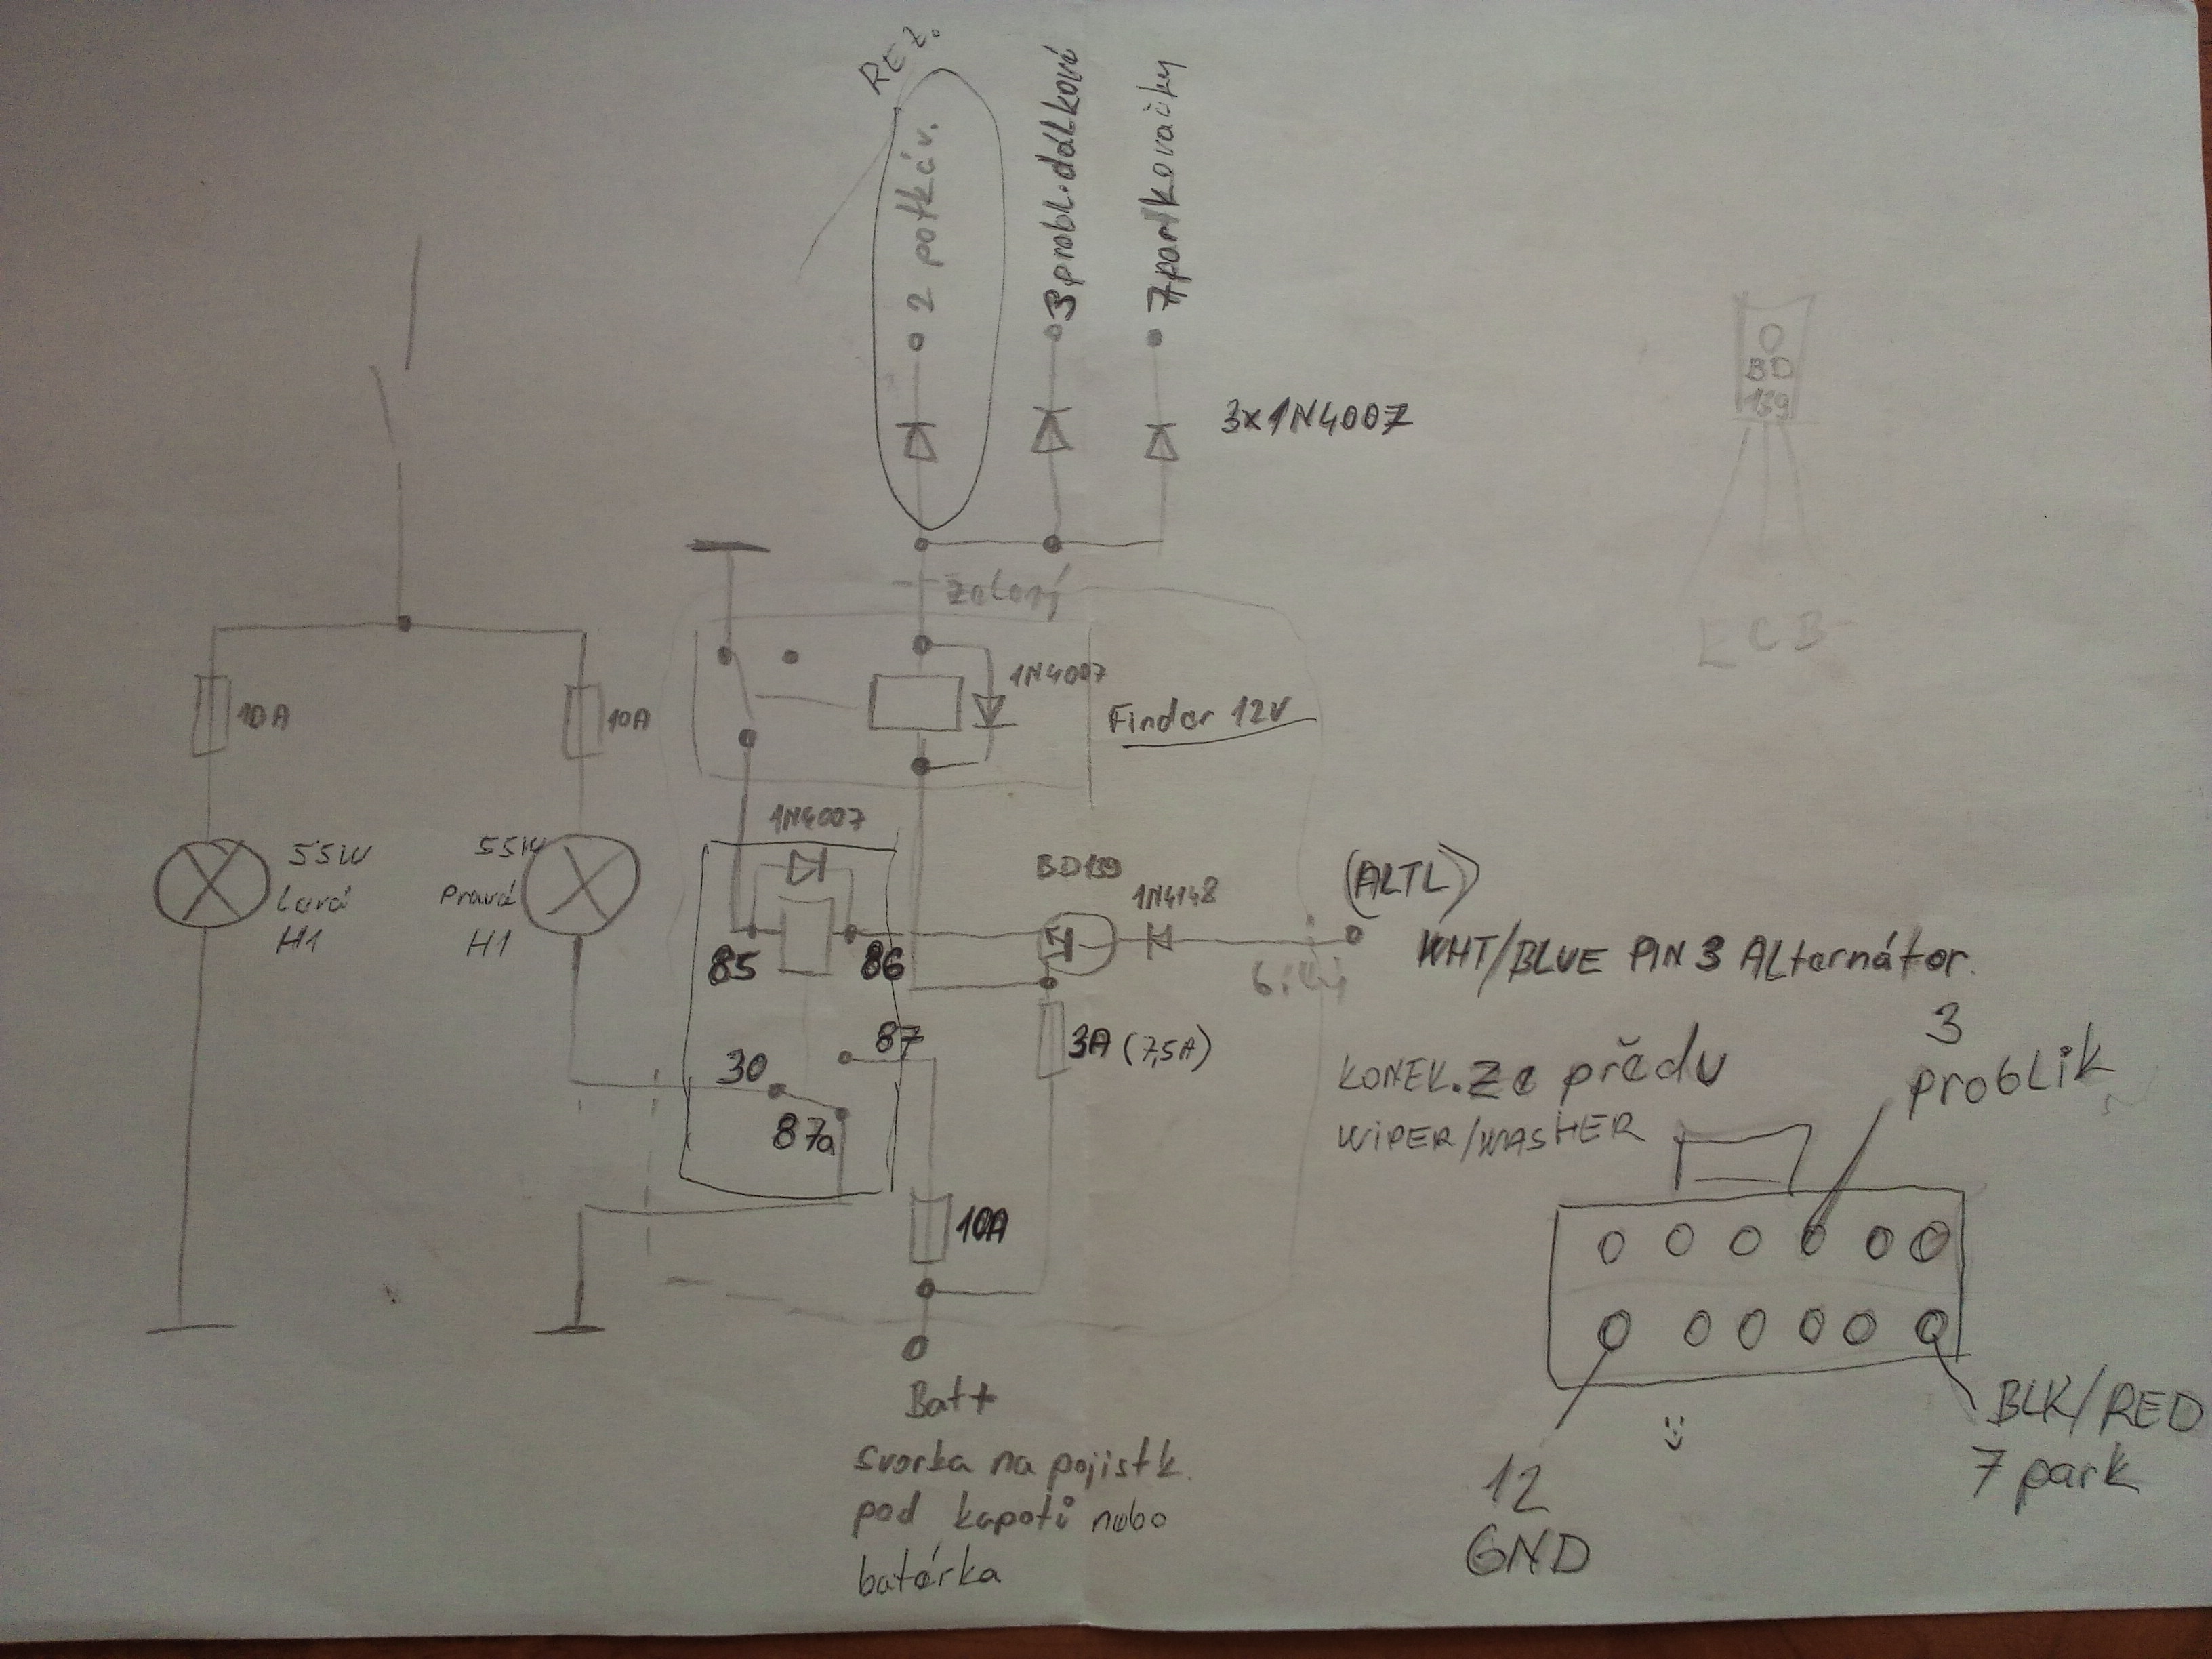 REZ.
2 potkáv.
3 probl. dálkové
7 parkovačky
3x1N4007
BD
139
E C B
zelený
1N4007
Finder 12V
10A
10A
1N4007
55W
Levá
H1
55W
Pravá
H1
BD139
1N4148
(ALTL)
85
86
WHT/BLUE PIN 3 ALternátor.
bílý
87
30
87a
3A (7,5A)
KONEK. Ze předu
WIPER/WASHER
3
problik
10A
Bat+
svorka na pojistk.
pod kapotě nebo
batérka
BLK/RED
7 park
12
GND